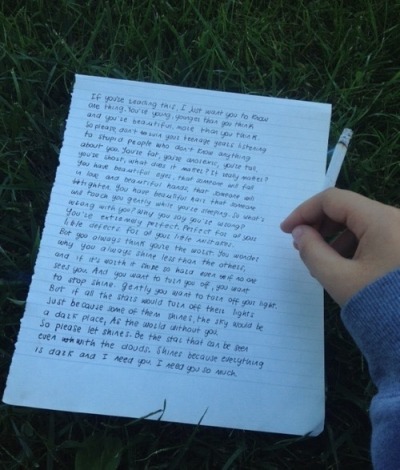 If you're reading this, I just want you to know
one thing. You're young, younger than you think
and you're beautiful, more than you think.
So please don't ruin your teenage years listening
to stupid people who don't know anything
about you. You're fat, you're anorexic, you're tall,
you're short, what does it matter? It really matter?
You have beautiful eyes, that someone will fall
in love, and beautiful hands, that someone will
tighten. You have beautiful hair that someone
will touch gently while you're sleeping. So what's
wrong with you? Why you say you're wrong?
You're extremely perfect. Perfect for all your
little defects, for all your little mistakes.
But you always think you're the worst. You wonder
why you always shine less than the others,
and if it's worth it shine so hard even if no one
sees you. And you want to turn you off, you want
to stop shine. Gently you want to turn off your light.
But if all the stars would turn off their lights
just because some of them shines, the sky would be
a dark place, As the world without you.
So please let shines. Be the star that can be seen
even with the clouds. Shines because everything
is dark and I need you. I need you so much.